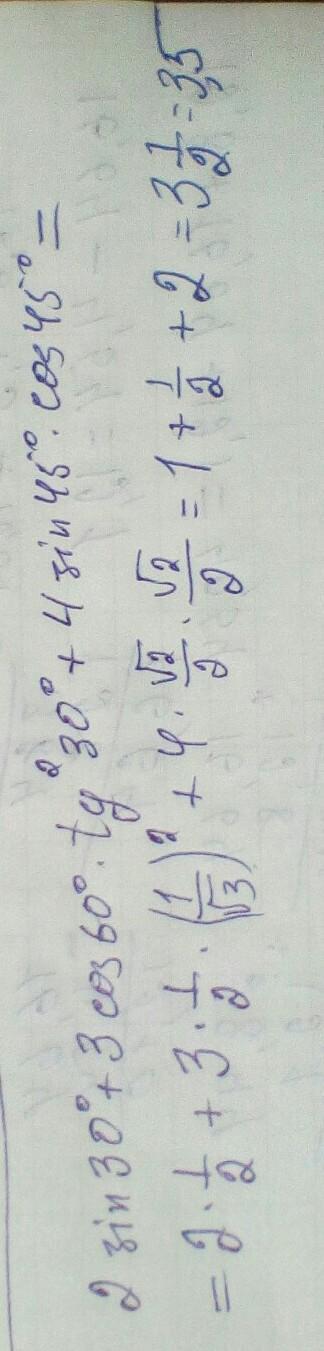 2 sin30° + 3 cos60° · tg²30° + 4 sin45° · cos45° =
= 2 · 1/2 + 3 · 1/2 · (1/√3)² + 4 · √2/2 · √2/2 = 1 + 1/2 + 2 = 3 1/2 = 3,5